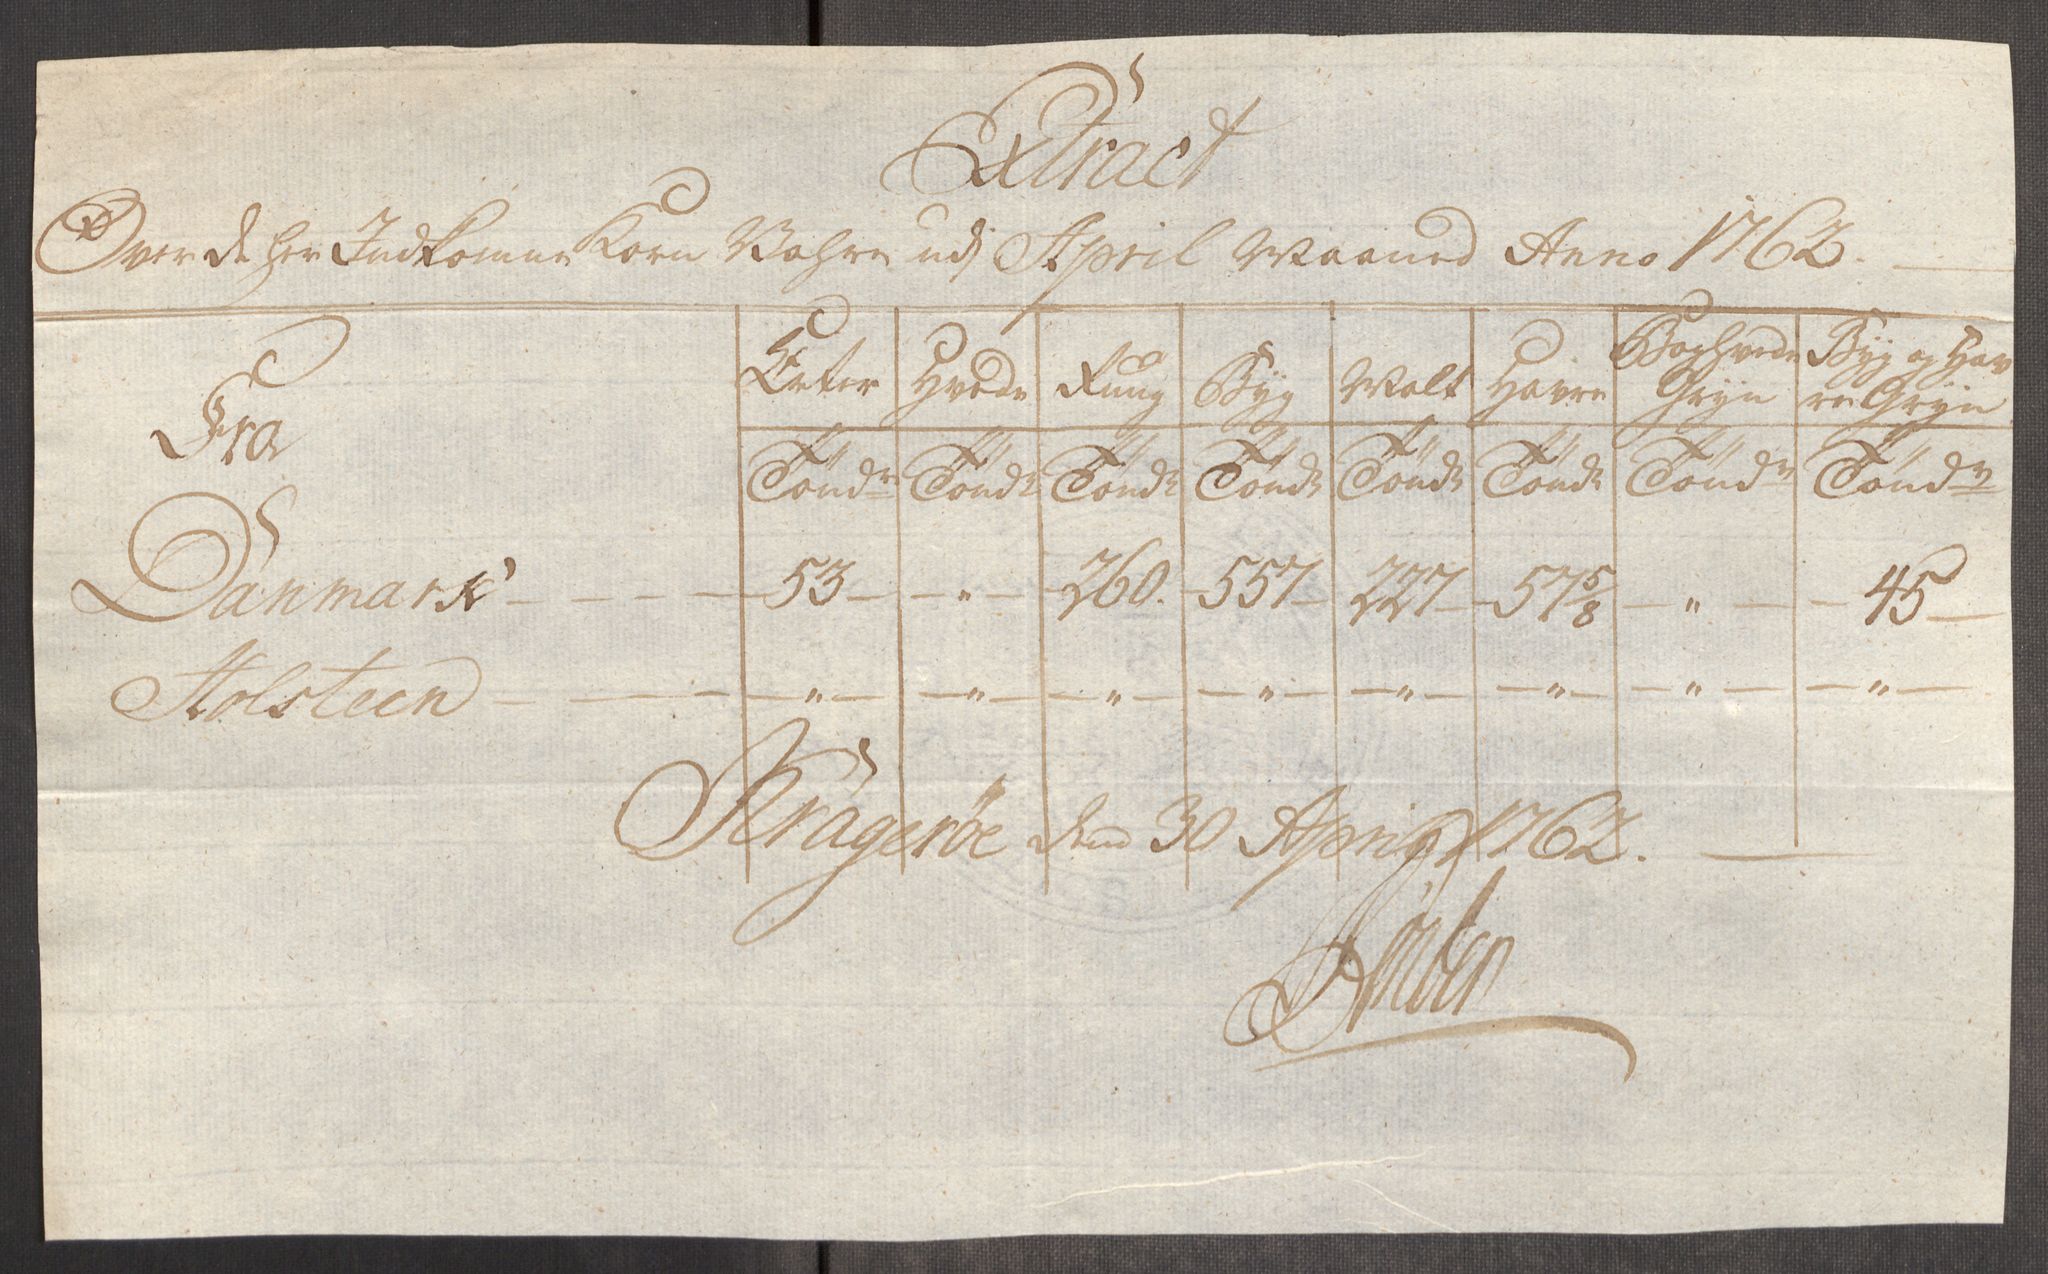 Extract
Over de her Indkomne Korn Vahre udj April Maaned Anno 1762.
Fra
Erter Hvede Rúúg Bÿg Malt Havre Boghvede Grÿn Bÿg og Havre Grÿn
Töndr Tönde Tönde Tönde Tönde Tönde Töndr Töndr
Danmark 53 " 260. 557 227 57 5/8 " 45
Holsteen " " " " " " " "
Kragerøe dend 30 April 1762.